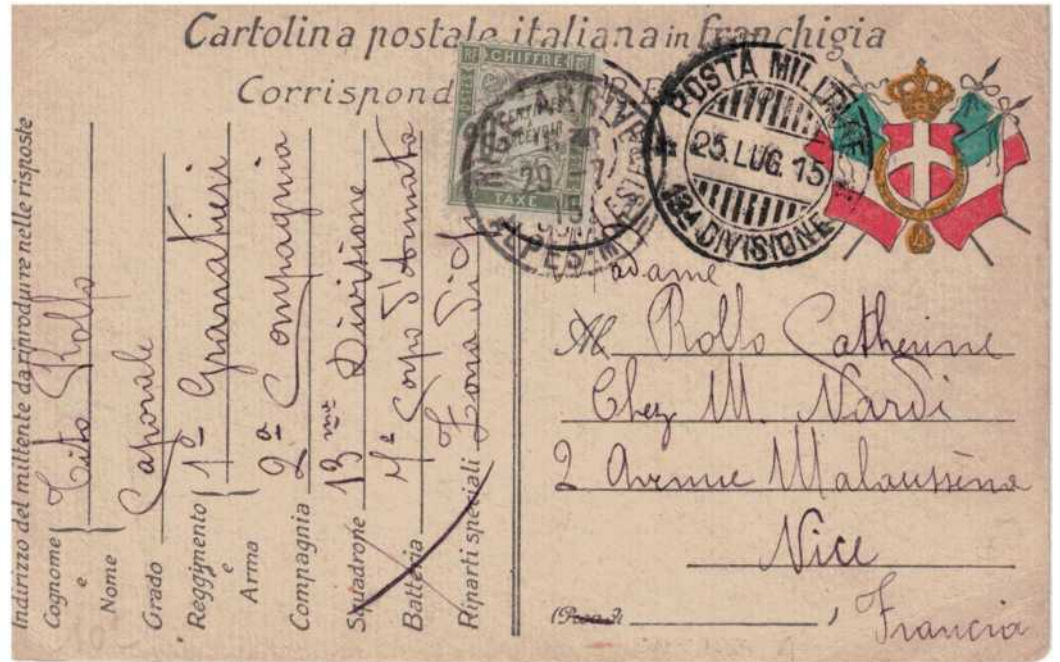 Cartolina postale italiana in franchigia
Corrispond
RF CHIFFRE
POSTES
TAXE
ALPES-M
POSTA MILITARE
25. LUG. 15
13A DIVISIONE
Indirizzo del mittente da riprodurre nelle risposte
Cognome e Nome Tito Rollo
Grado Caporale
Reggimento e Arma 1º Granatieri
Compagnia 2ª Compagnia
Squadrone 13me Divisione
Batteria Corpo d'Armata
Riparti speciali Zona di
Madame Rollo Catherine
Chez M. Nardi
2 Avenue Malaussèna
Nice
Francia